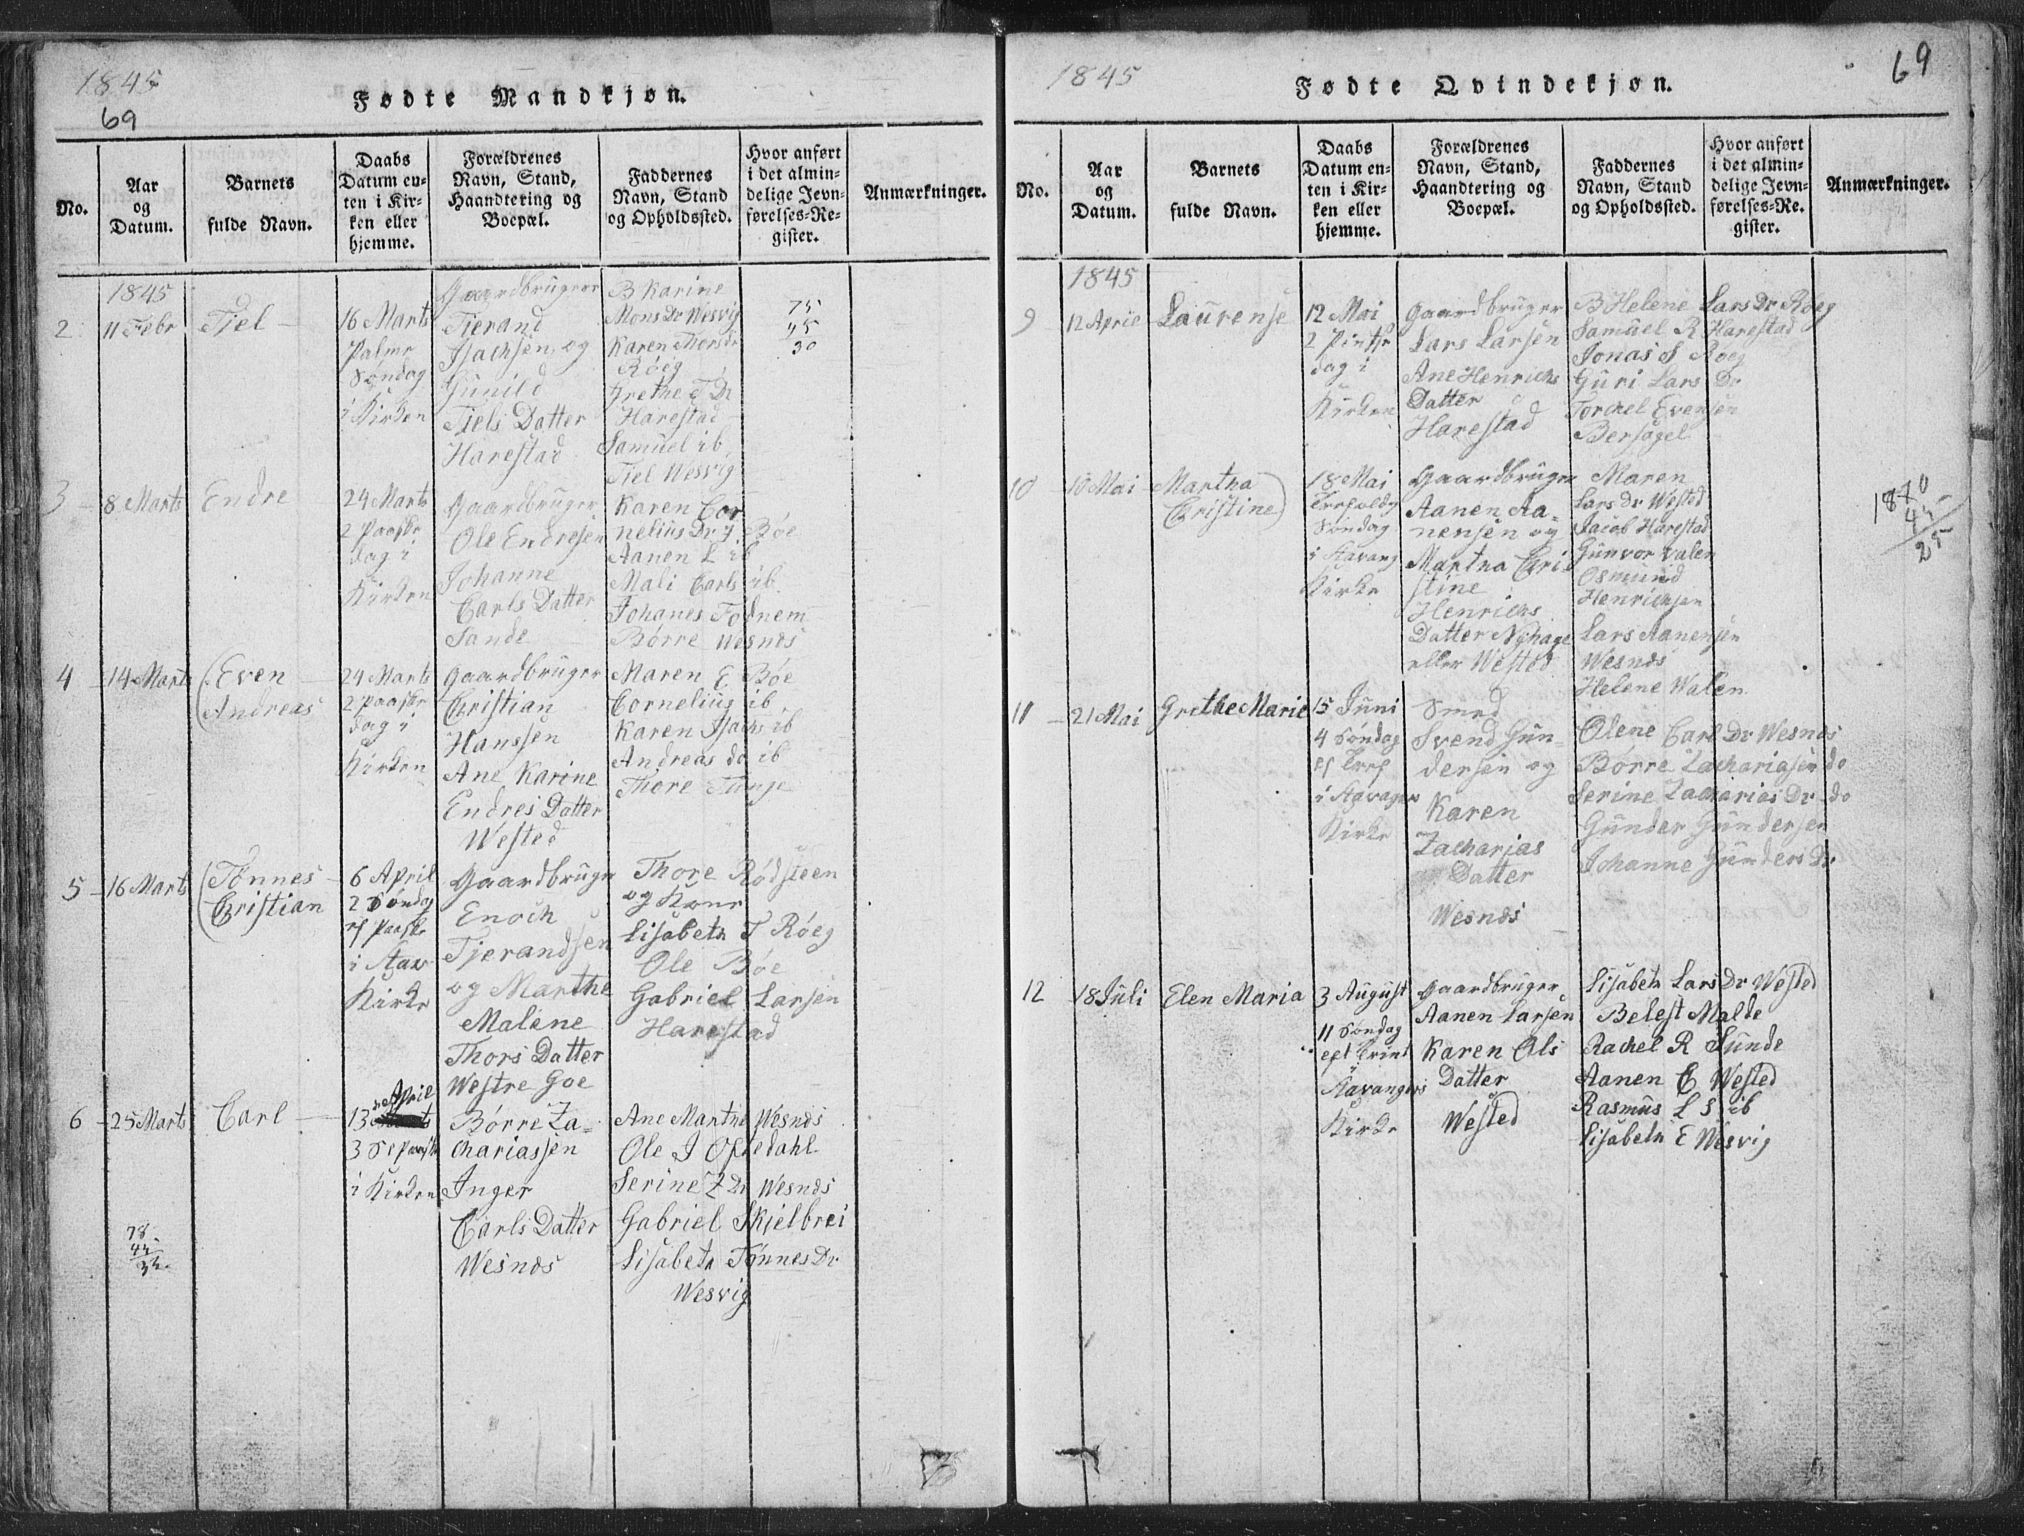 1845
69
Fødte Mandkjøn.
No.
Aar
og
Datum.
Barnets
fulde Navn.
Daabs
Datum en-
ten i Kir-
ken eller
hjemme.
Forældrenes
Navn, Stand,
Haandtering og
Boepæl.
Faddernes
Navn, Stand
og Opholdssted.
Hvor anført
i det almin-
delige Jevn-
førelses-Re-
gister.
Anmærkninger.
1845
2
11 Febr
Tjel
16 Marts
Palme
Søndag
i Kirken
Gaardbruger
Tjerand
Isachsen og
Gunild
Tjels Datter
Harestad
B Karine
Mons Dr Wesvig
Karen Monsdr
Røeg
Grethe T Dr
Harestad
Samuel ib
Tiel Wesvig
75
45
30
3
8 Marts
Endre
24 Marts
2 Paaske
dag i
Kirken
Gaardbruger
Ole Endresen
Johanne
Carls Datter
Sande
Karen Cor
nelius Dr Bøe
Aanen L ib
Mali Carls ib
Johanes Fodnem
Børre Wesnes
4
14 Marts
Even
Andreas
24 Marts
2 Paaske
dag i
Kirken
Gaardbruger
Christian
Hanssen
Ane Karine
Endres Datter
Wested
Maren E Bøe
Cornelius ib
Karen Isachs ib
Andreas do ib
Thore Tunge
5
16 Marts
Tønnes
Christian
6 April
2 Søndag
ef Paaske
i Stav
Kirke
Gaardbruger
Enoch
Tjerandsen
og Marthe
Malene
Thors Datter
Westre Goe
Thore Rødsteen
og Kone
Lisabeth T Røeg
Ole Bøe
Gabriel Larsen
Harestad
6
25 Marts
Carl
April
13
3 S e Paaske
i Kirken
Børre Za-
chariassen
Inger
Carls Datter
Wesnes
Ane Marthe Wesnes
Ole J Oftedahl
Serine Z Dr Wesnes
Gabriel Skjelbrei
Lisabeth Tønnes Dr
Wesvig
78
44
34
1845
69
Fødte Qvindekjøn.
No.
Aar
og
Datum.
Barnets
fulde Navn.
Daabs
Datum en-
ten i Kir-
ken eller
hjemme.
Forældrenes
Navn, Stand,
Haandtering og
Boepæl.
Faddernes
Navn, Stand
og Opholdssted.
Hvor anført
i det almin-
delige Jevn-
førelses-Re-
gister.
Anmærkninger.
1845
9
12 April
Laurense
12 Mai
2 Pintse
dag i
Kirken
Gaardbruger
Lars Larsen
Ane Henrichs
Datter
Harestad
B Helene Lars Dr Roeg
Samuel R Harestad
Jonas S Roeg
Guri Lars Dr
Torckel Evensen
Bersagel
10
10 Mai
Martha
Christine
18 Mai
Søndag
i Stavang
Kirke
Gaardbruger
Aanen Aa-
nensen og
Martha Chri
stine
Henrichs
Datter Nyhage
eller Wested
Maren
Lars Dr Wested
Jacob Harestad
Gunvor Valen
Osmund
Henrichsen
Lars Aanensen
Wesnes
Helene Walen
1870
45
25
11
21 Mai
Grethe Marie
15 Juni
4 Søndag
ef Tref
i Stavager
Kirke
Smed
Svend Gun-
dersen og
Karen
Zacharias
Datter
Wesnes
Olene Carl Dr Wesnes
Børre Zachariasen do
Serine Zacharias Dr do
Gunder Gundersen
Johanne Gunders Dr
12
18 Juli
Elen Maria
3 August
11 Søndag
eft Trint
Stavangers
Kirke
Gaardbruger
Aanen Larsen
Karen Ols
Datter
Wested
Lisabeth Lars Dr Wested
Belest Malde
Rachel R Sunde
Aanen E Wested
Rasmus L S ib
Lisabeth E Wesvig